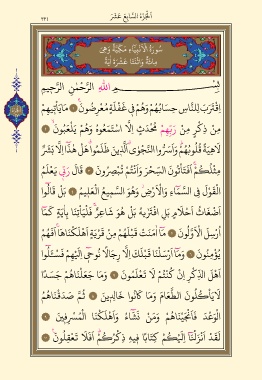 الجزء السابع عشر
٣٢١
سورة الانبياء مكية وهي
مائة واثنتا عشرة اية
بسم الله الرحمن الرحيم
اقترب للناس حسابهم وهم في غفلة معرضون ۝ ما يأتيهم
من ذكر من ربهم محدث الا استمعوه وهم يلعبون ۝
لاهية قلوبهم واسروا النجوى الذين ظلموا هل هذا الا بشر
مثلكم افتأتون السحر وانتم تبصرون ۝ قال ربي يعلم
القول في السماء والارض وهو السميع العليم ۝ بل قالوا
اضغاث احلام بل افتريه بل هو شاعر فليأتنا باية كما
ارسل الاولون ۝ ما امنت قبلهم من قرية اهلكناها افهم
يؤمنون ۝ وما ارسلنا قبلك الا رجالا نوحي اليهم فسئلوا
اهل الذكر ان كنتم لا تعلمون ۝ وما جعلناهم جسدا
لا يأكلون الطعام وما كانوا خالدين ۝ ثم صدقناهم
الوعد فانجيناهم ومن نشاء واهلكنا المسرفين ۝
لقد انزلنا اليكم كتابا فيه ذكركم افلا تعقلون ۝